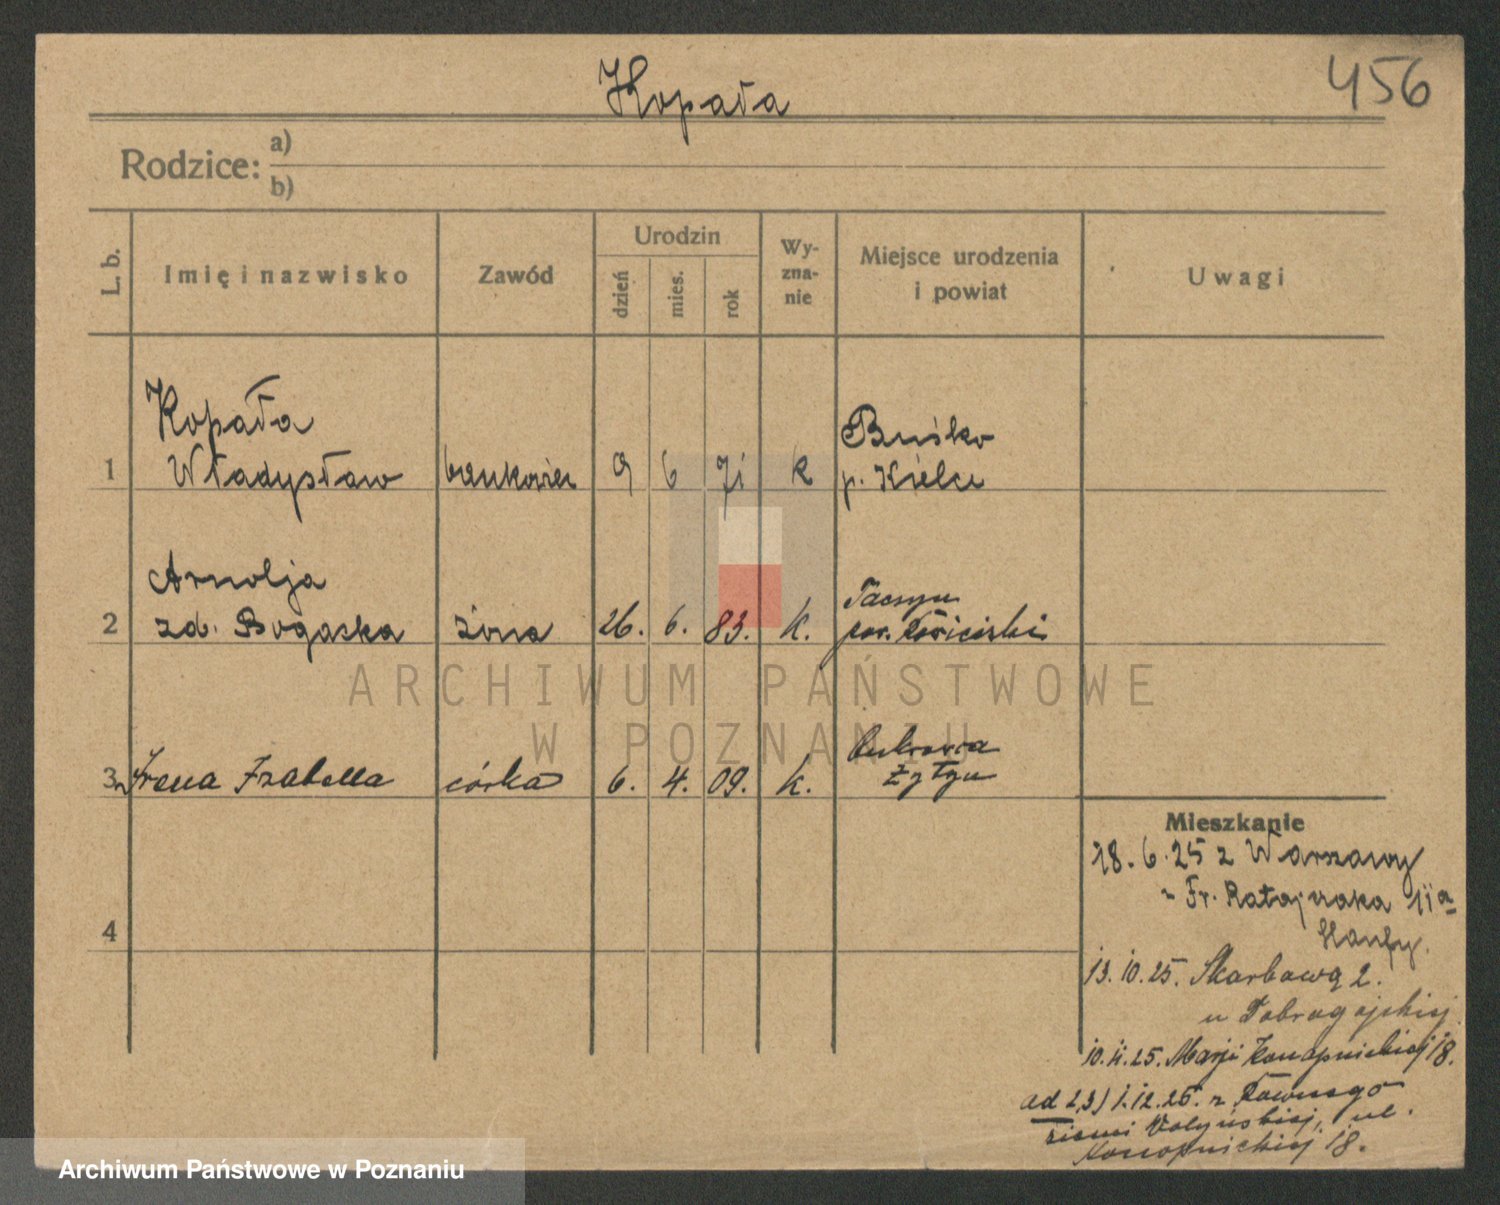 Kopała
456
Rodzice: a)
b)
L. b.
Imię i nazwisko
Zawód
Urodzin
dzień
mies.
rok
Wy-
zna-
nie
Miejsce urodzenia
i powiat
Uwagi
1
Kopała
Władysław
bankowiec
9
6
71
k
Buśko
p. Kielce
2
Arnolja
zd. Bogacka
żona
26.
6.
83.
k.
pow.
3
Irena Izabella
córka
6.
4.
09.
k.
Cukrownia
Żytyn
4
Mieszkanie
18.6.25 z Warszawy
Fr. Ratajczaka 11a
13.10.25. Skarbowa 2.
u Dobrogojskiej
10.11.25. Marji Konopnickiej 18.
ad 2,3) 1.12.25. z Równego
ziemi Wołyńskiej, ul.
Konopnickiej 18.
ARCHIWUM PAŃSTWOWE
W POZNANIU
Archiwum Państwowe w Poznaniu